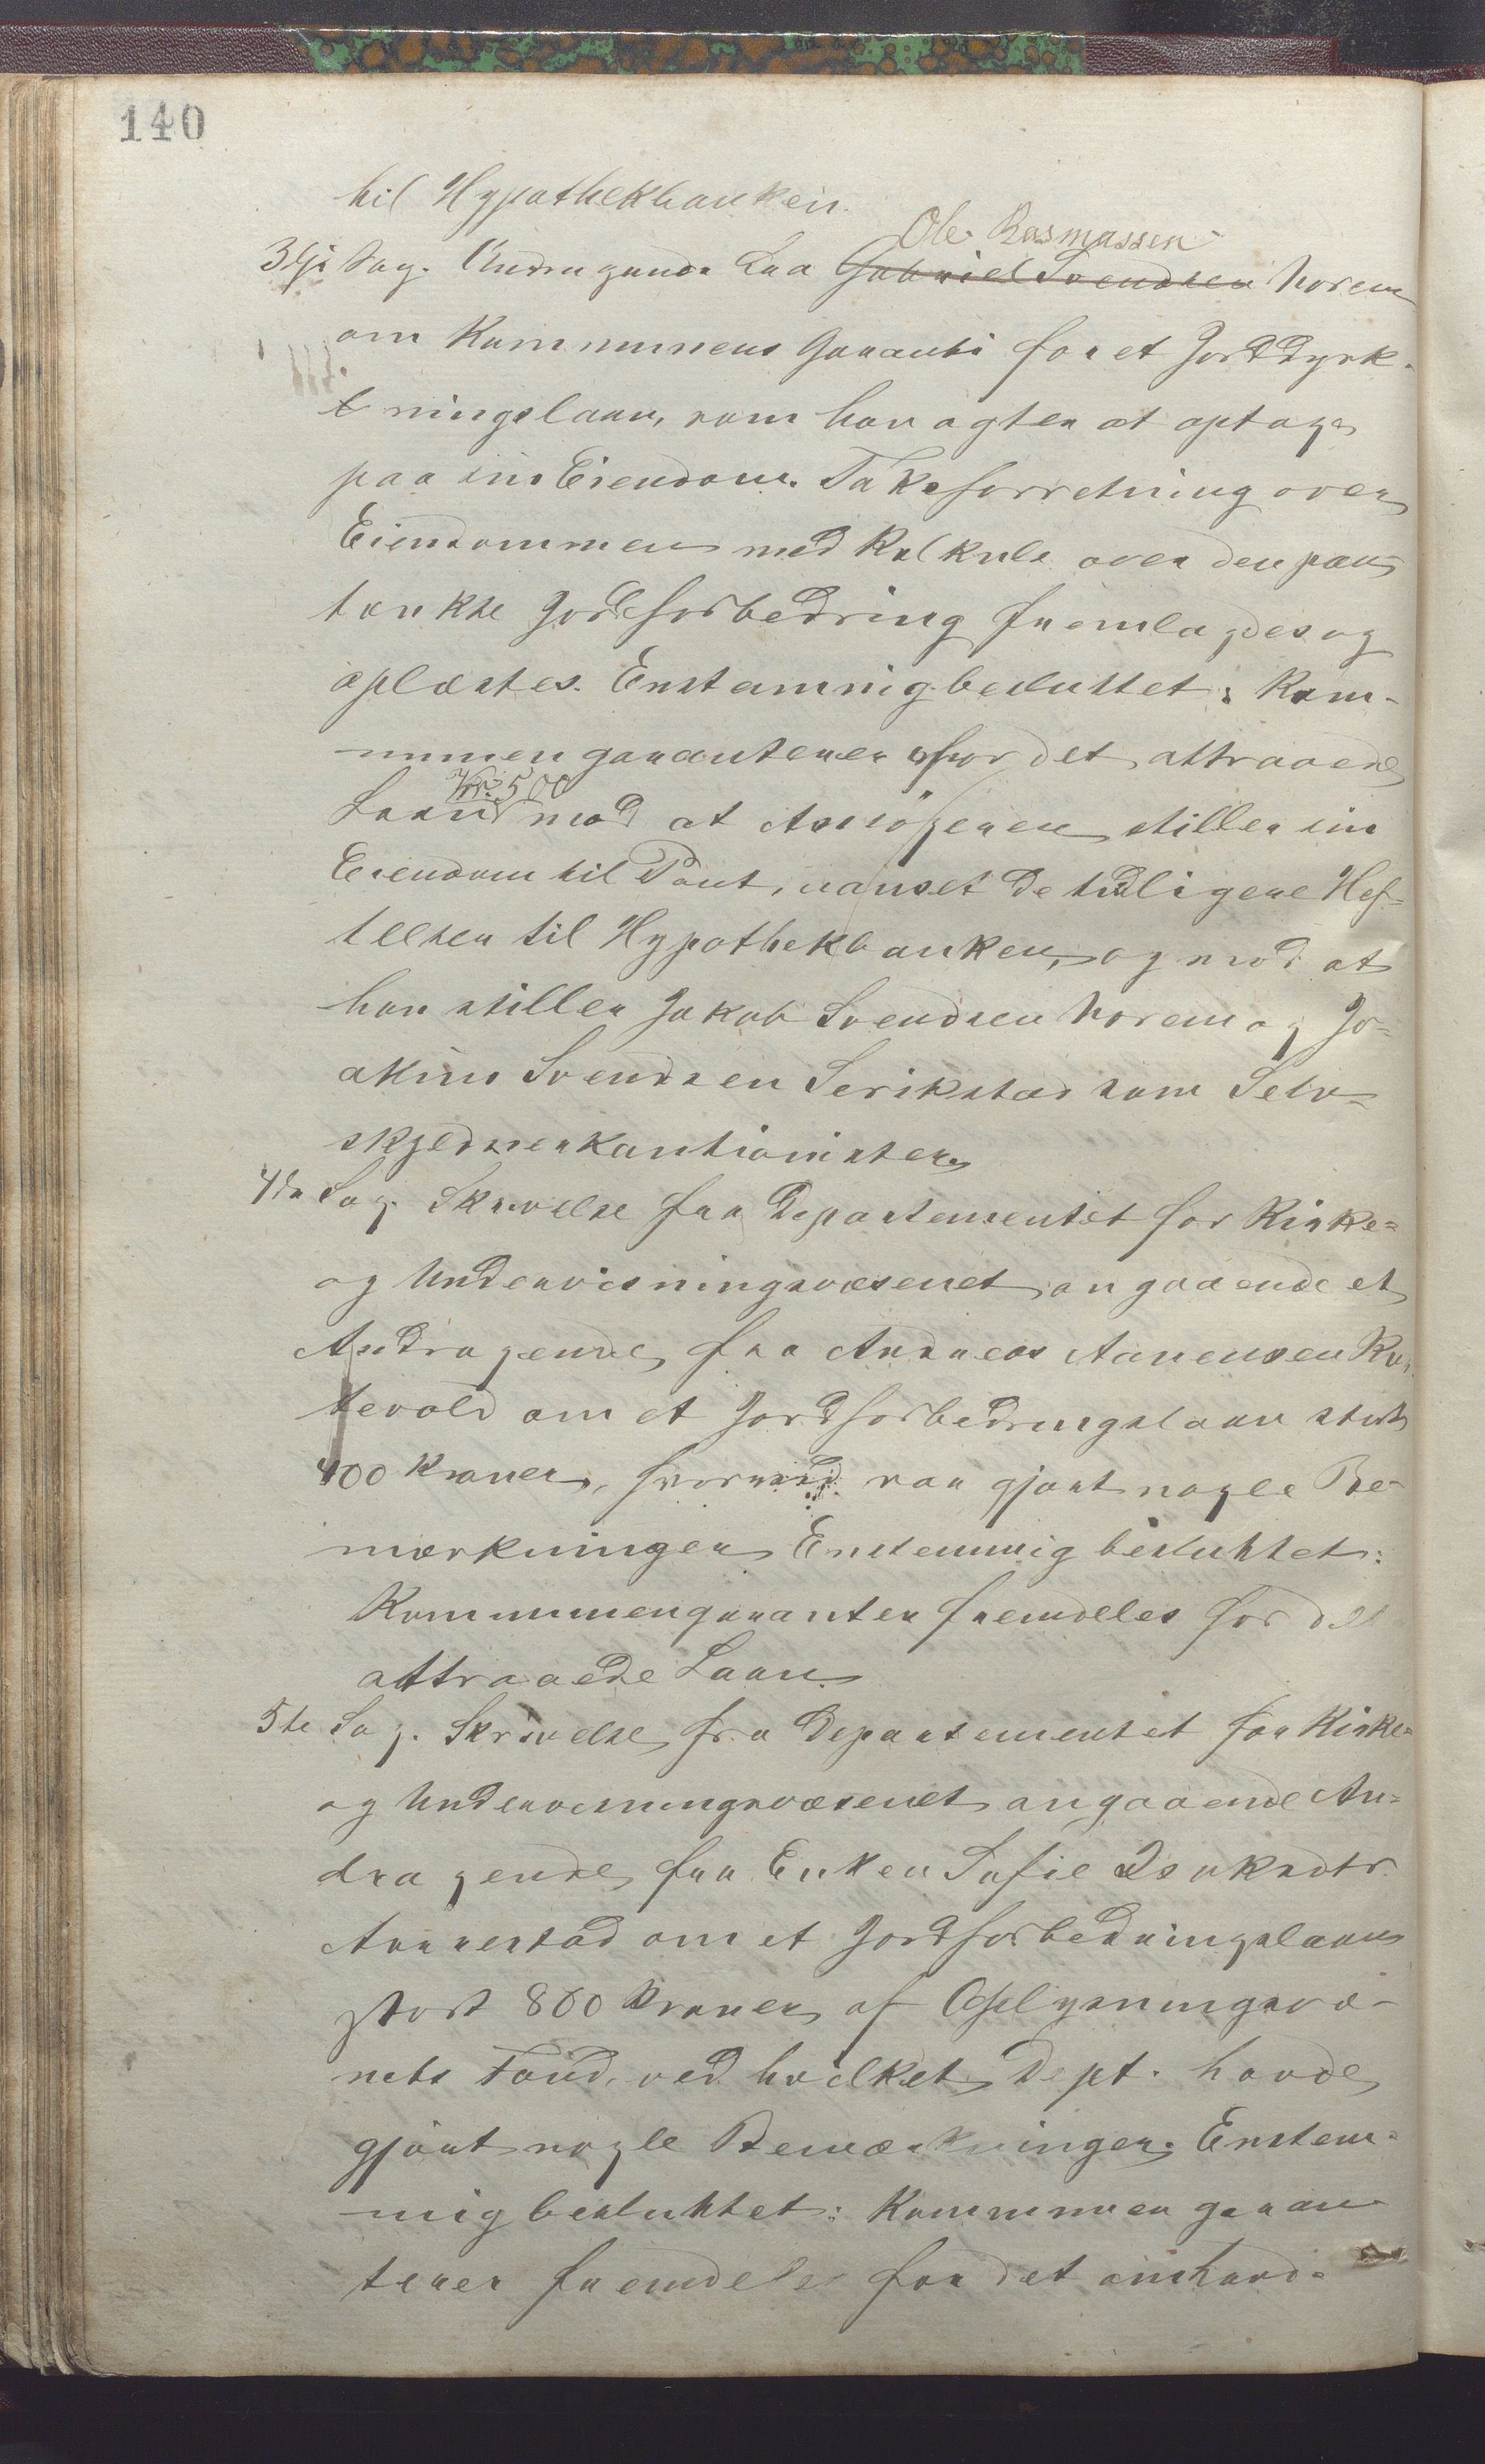 140
til Hypothekbanken.
Ole Rasmussen
3dje Sag. Andragende fra Gabriel Svendsen Norem
om Kommunens Garanti for et Jorddyrk-
ningslaan, som han agter at optage
paa sin Eiendom. Taksforretning over
Eiendommen med Kalkule over den paa-
tænkte Jordforbedring fremlagdes og
oplæstes. Enstemmig besluttet: Kom-
munen garanterer for det attraaede
Kr. 500
Laan mod at Ansøgeren stiller sin
Eiendom til Pant, uanset de tidligere Hef-
telser til Hypothekbanken, og mod at
han stiller Jakob Svendsen Norem og Jo-
akim Svendsen Serikstad som Selv-
skyldnerkautionister.
4de Sag. Skrivelse fra Departementet for Kirke-
og Undervisningsvæsenet angaaende et
Andragende fra Andreas Aanensen Ru-
tevold om et Jordforbedringslaan stort
400 Kroner, hvorved var gjort nogle Be-
mærkninger. Enstemmig besluttet:
Kommunen garanter fremdeles for det
attraaede Laan.
5te Sag. Skrivelse fra Departementet for Kirke-
og Undervisningsvæsenet angaaende An-
dragende fra Enken Sofie Isaksdtr.
Aarrestad om et Jordforbedringslaan
stort 800 Kroner af Oplysningsvæ-
nets Fond, ved hvilket Dept. havde
gjort nogle Bemærkninger. Enstem-
mig besluttet: Kommunen garan-
terer fremdeles for det omhand-